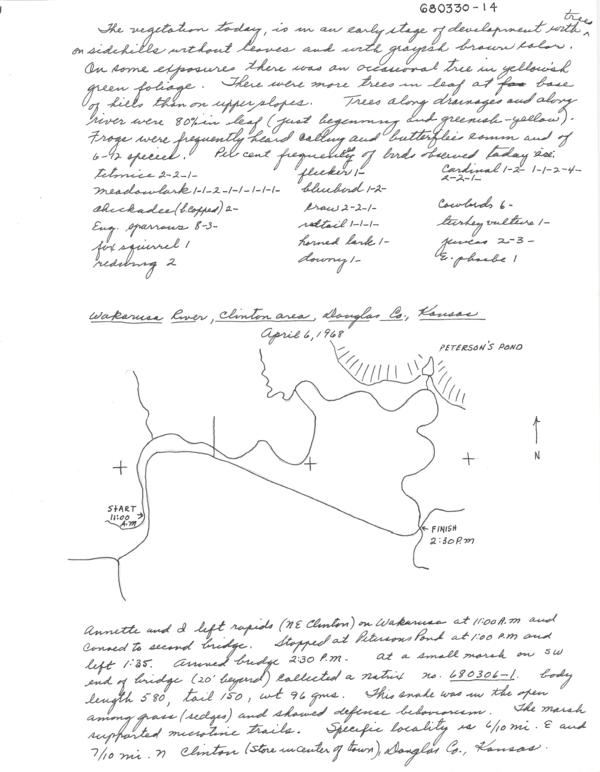 680330-14
The vegetation today, is in an early stage of development with trees
on sidehills without leaves and with grayish brown color.
On some exposures there was an occasional tree in yellowish
green foliage. There were more trees in leaf at base
of hills than on upper slopes. Trees along drainages and along
river were 80% in leaf (just beginning and greenish-yellow).
Frogs were frequently heard calling and butterflies comm and of
6-12 species. Per cent frequently of birds observed today is:
titmice 2-2-1- flicker 1- Cardinal 1-2- 1-1-2-4-
2-2-1-
meadowlark 1-1-2-1-1-1-1-1- bluebird 1-2-
chickadee (b capped) 2- crow 2-2-1- Cowbirds 6-
Eng. sparrows 8-3- redtail 1-1-1- turkey vulture 1-
fox squirrel 1 horned lark 1- juncos 2-3-
redwing 2 downy 1- E. phoebe 1
Wakarusa River, Clinton area, Douglas Co., Kansas
April 6, 1968
PETERSON'S POND
N
START
11:00
A.M
FINISH
2:30 P.M
Annette and I left rapids (NE Clinton) on Wakarusa at 11:00 A.m and
canoed to second bridge. Stopped at Petersons Pond at 1:00 P.m and
left 1:35. Arrived bridge 2:30 P.M. At a small marsh on SW
end of bridge (20' beyond) collected a natrix no. 680306-1. body
length 580, tail 150, wt 96 gms. This snake was in the open
among grass (sedges) and showed defense behaviorism. The marsh
supported microtine trails. Specific locality is 6/10 mi. E and
7/10 mi. N Clinton (Store in center of town), Douglas Co., Kansas.